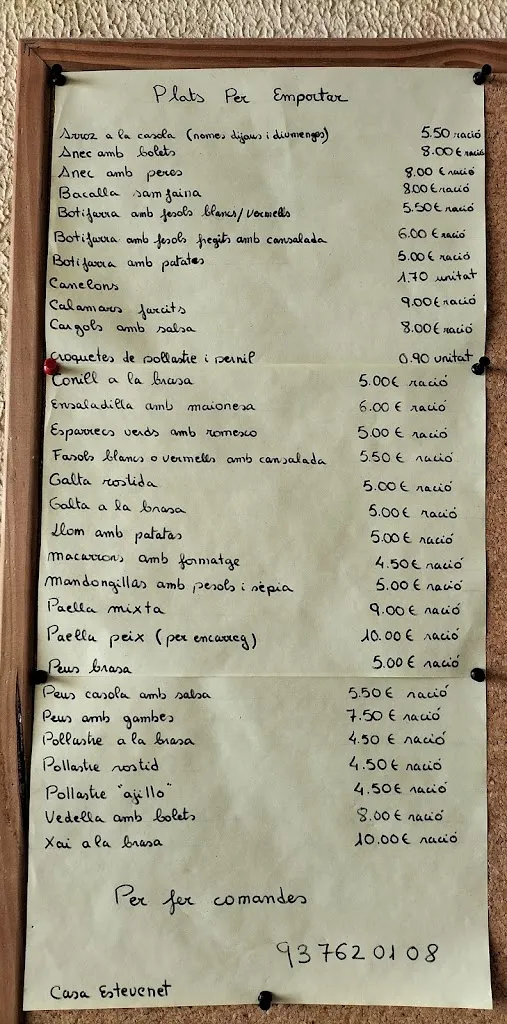 Plats Per Emportar
Arroz a la casola (nomes dijous i diumenges) 5.50 ració
Anec amb bolets 8.00 € ració
Anec amb peres 8.00 € ració
Bacalla samfaina 8.00 € ració
Botifarra amb fesols blancs/vermells 5.50 € ració
Botifarra amb fesols fregits amb cansalada 6.00 € ració
Botifarra amb patates 5.00 € ració
Canelons 1.70 unitat
Calamars farcits 9.00 € ració
Cargols amb salsa 8.00 € ració
Croquetes de pollastre i pernil 0.90 unitat
Conill a la brasa 5.00 € ració
Ensaladilla amb maionesa 6.00 € ració
Esparrecs verds amb romesco 5.00 € ració
Fasols blancs o vermells amb cansalada 5.50 € ració
Galta rostida 5.00 € ració
Galta a la brasa 5.00 € ració
Llom amb patatas 5.00 € ració
Macarrons amb formatge 4.50 € ració
Mandongillas amb pesols i sèpia 5.00 € ració
Paella mixta 9.00 € ració
Paella peix (per encarreg) 10.00 € ració
Peus brasa 5.00 € ració
Peus casola amb salsa 5.50 € ració
Peus amb gambes 7.50 € ració
Pollastre a la brasa 4.50 € ració
Pollastre rostid 4.50 € ració
Pollastre "ajillo" 4.50 € ració
Vedella amb bolets 8.00 € ració
Xai a la brasa 10.00 € ració
Per fer comandes
937620108
Casa Estevenet